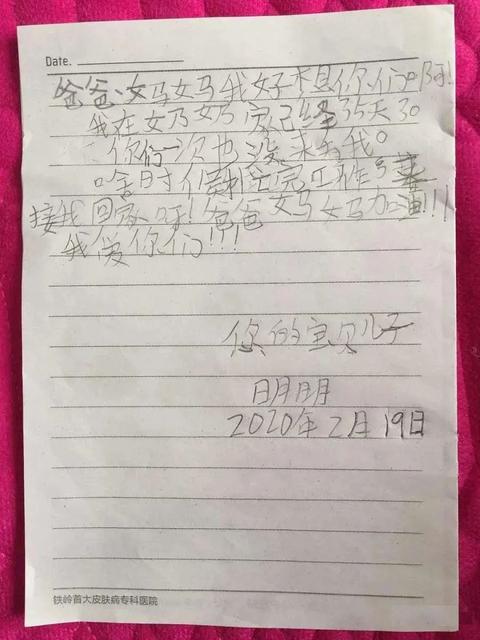 Date.
爸爸妈妈我好想你们啊!
我在奶奶家已经35天了。
你们一次也没来看我。
啥时候工作
接我回家呀!爸爸妈妈加油!!!
我爱你们!!!
您的宝贝儿子
明明
2020年2月19日
铁岭首大皮肤病专科医院